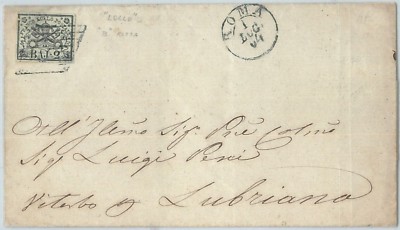 BAJ 2
ROMA
1
LUG.
64
All'Illmo Sig. Pne Colmo
Sig Luigi
Viterbo Lubriano